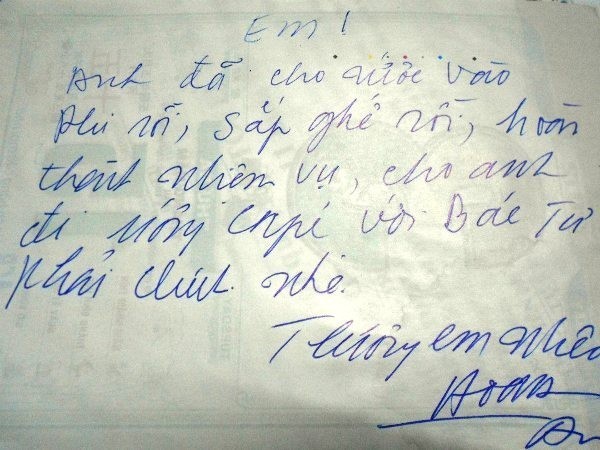 Em!
Anh đã cho nước vào
phi rồi, sắp ghế rồi, hoàn
thành nhiệm vụ, cho anh
đi uống capé với Bác Tư
phải chút nhé.
Thương em nhiều